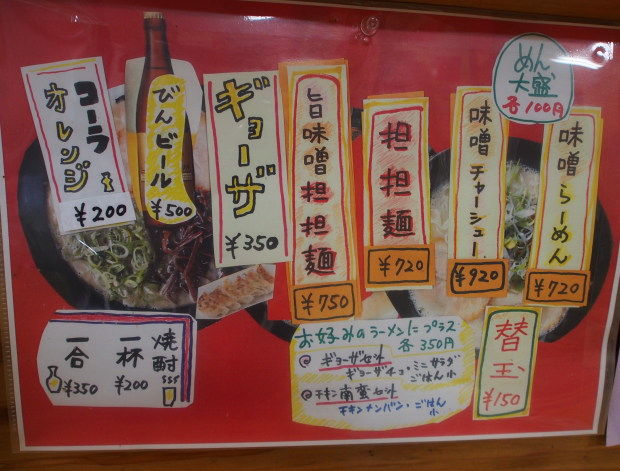 めん
大盛
各100円
味噌らーめん
¥720
味噌チャーシュー
¥920
担担麺
¥720
旨味噌担担麺
¥750
ギョーザ
¥350
びんビール
¥500
コーラ
オレンジ
¥200
焼酎
一杯
¥200
一合
¥350
お好みのラーメンにプラス
各350円
@ギョーザセット
ギョーザ4コ・ミニサラダ
ごはん小
@チキン南蛮セット
チキンナンバン・ごはん
小
替玉
¥150